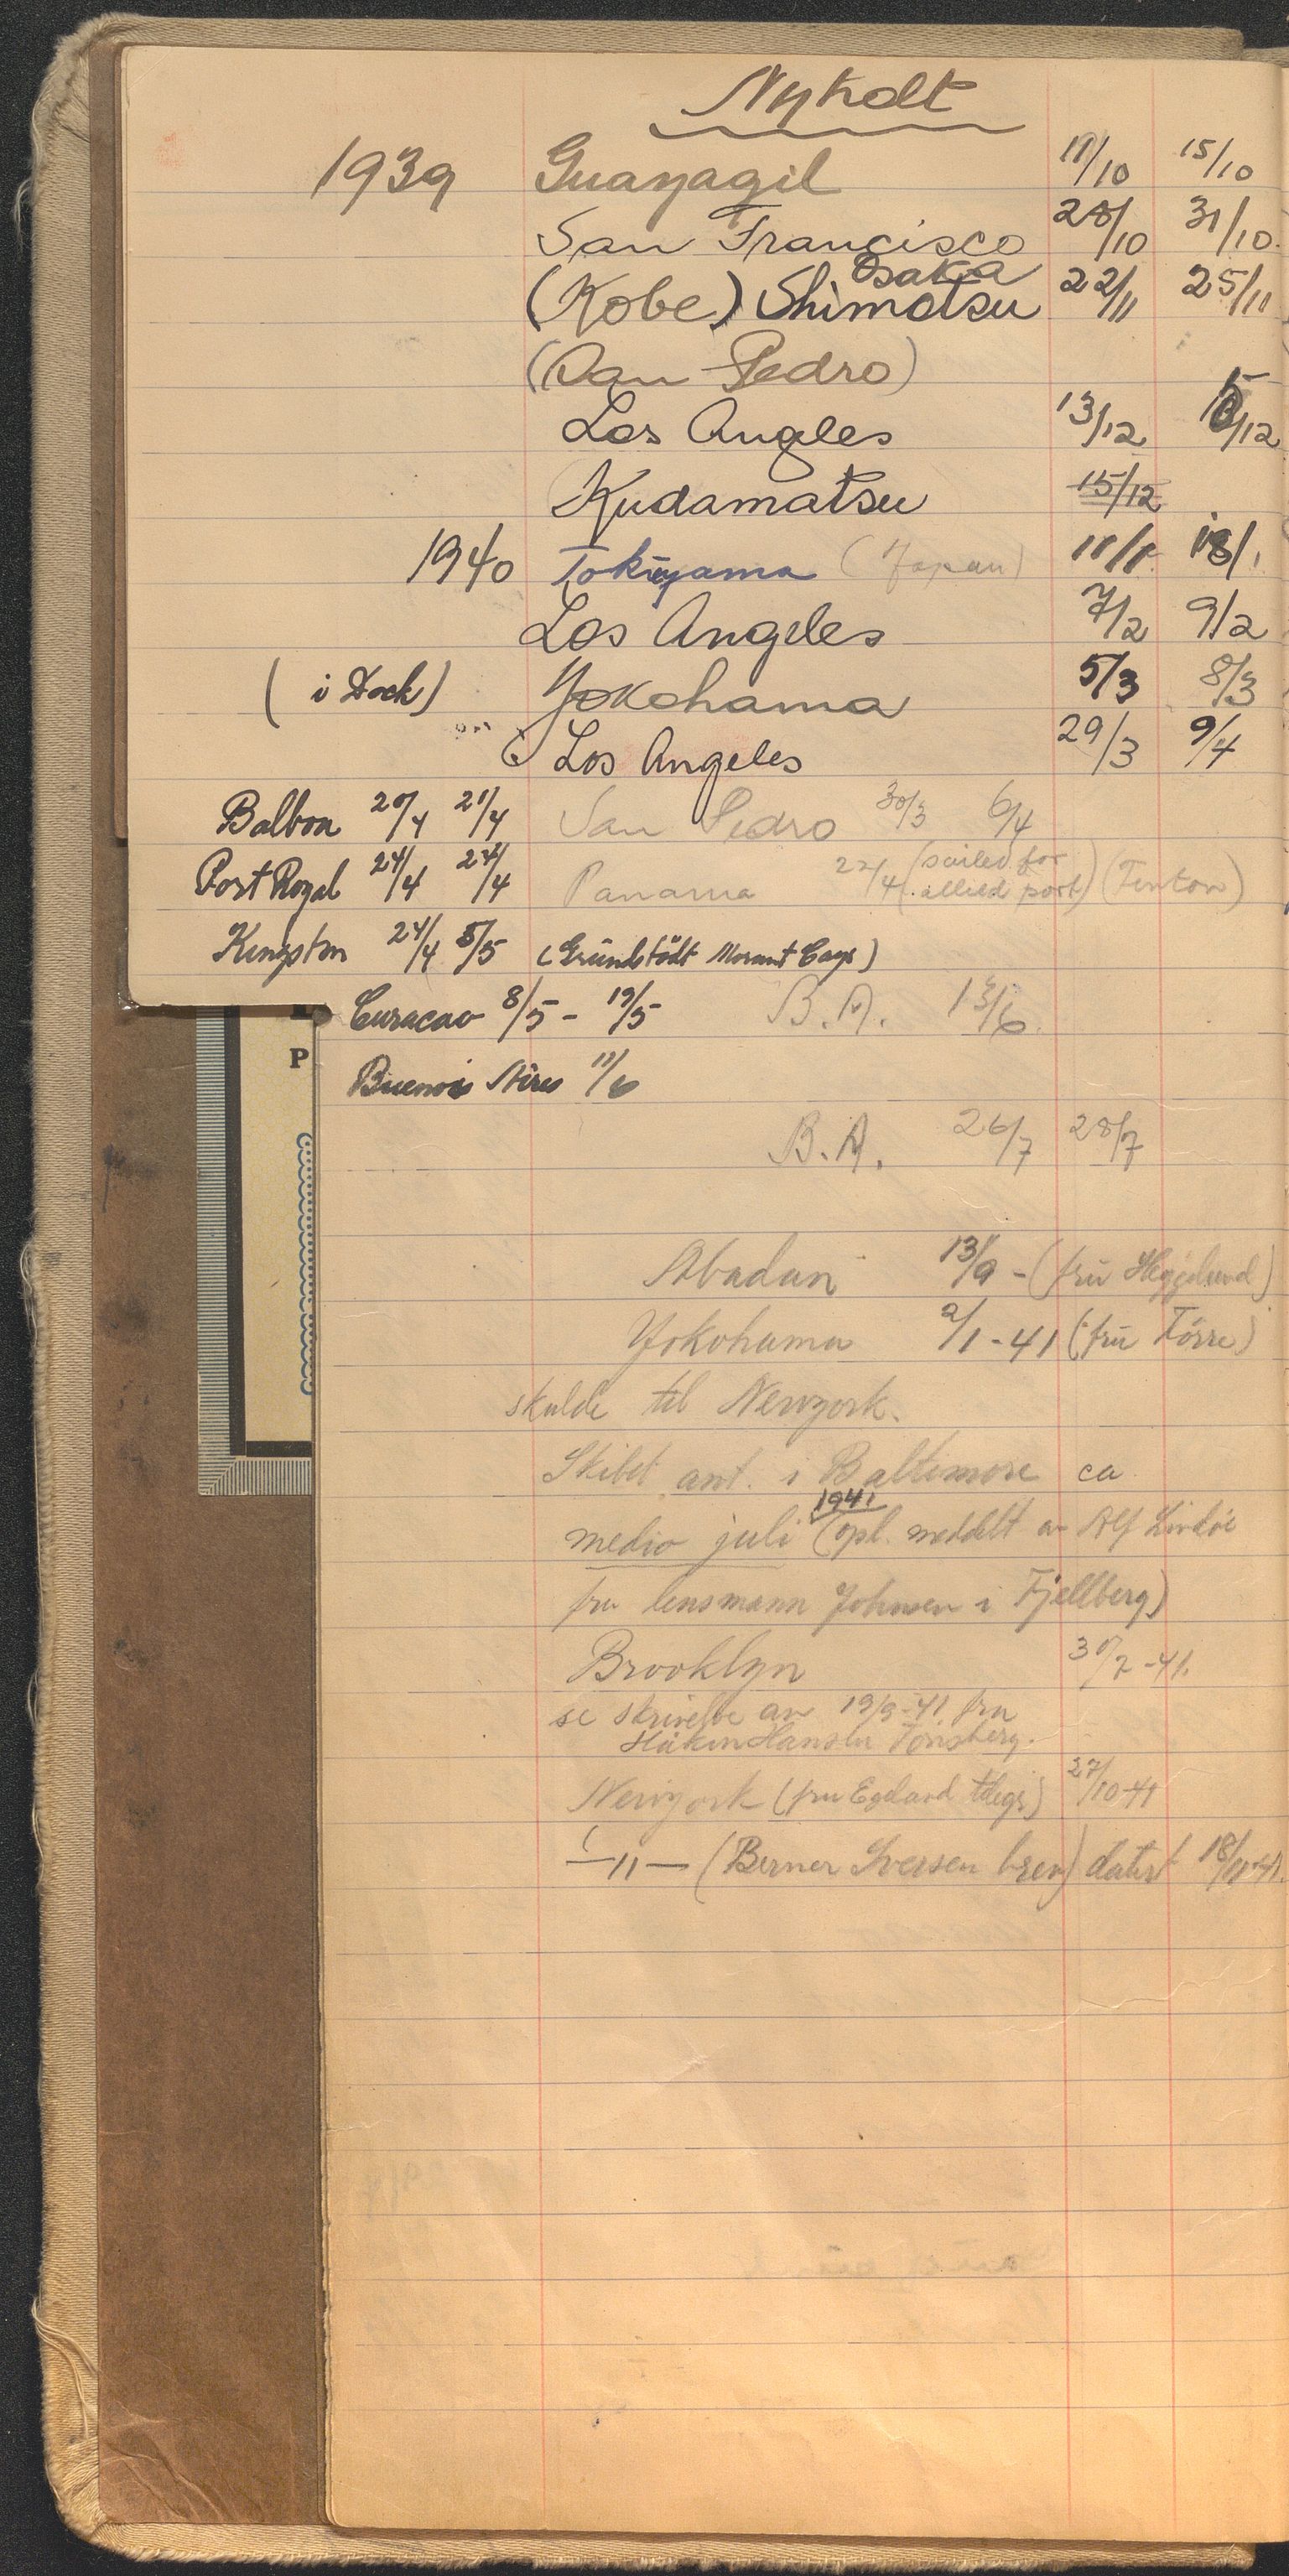 Nyholt
1939 Guayagil 11/10 15/10
San Francisco 28/10 31/10
Osaka
(Kobe) Shimotsu 22/11 25/11
(San Pedro)
Los Angeles 13/12 15/12
Kudamatsu 15/12
1940 Tokuyama (Japan) 11/1 18/1
Los Angeles 7/2 9/2
(i Dock) Yokohama 5/3 8/3
Los Angeles 29/3 9/4
Balboa 20/4 21/4 San Pedro 30/3 6/4
Port Royal 24/4 24/4 Panama 22/4 (sailed for allied port) (Finton)
Kingston 24/4 5/5 (Grundstødt Morant Cays)
Curacao 8/5 - 19/5 B.A. 13/6
P
Buenos Aires 11/6
B.A. 26/7 28/7
Abadan 13/9 - (fru Heggelund)
Yokohama 2/1-41 (fru Törre)
skulde til Newyork.
Skibet ant. i Baltimore ca
1941
medio juli (opl. meddelt av Alf Lindøe
fra lensmann Johnsen i Fjellberg)
Brooklyn 30/7-41.
se skrivelse av 19/9-41 fra
Håkon Hansen Tönsberg.
Newyork (fru Egeland telegr) 27/10-41
—11— (Berner Iversen brev) datert 18/11-41.